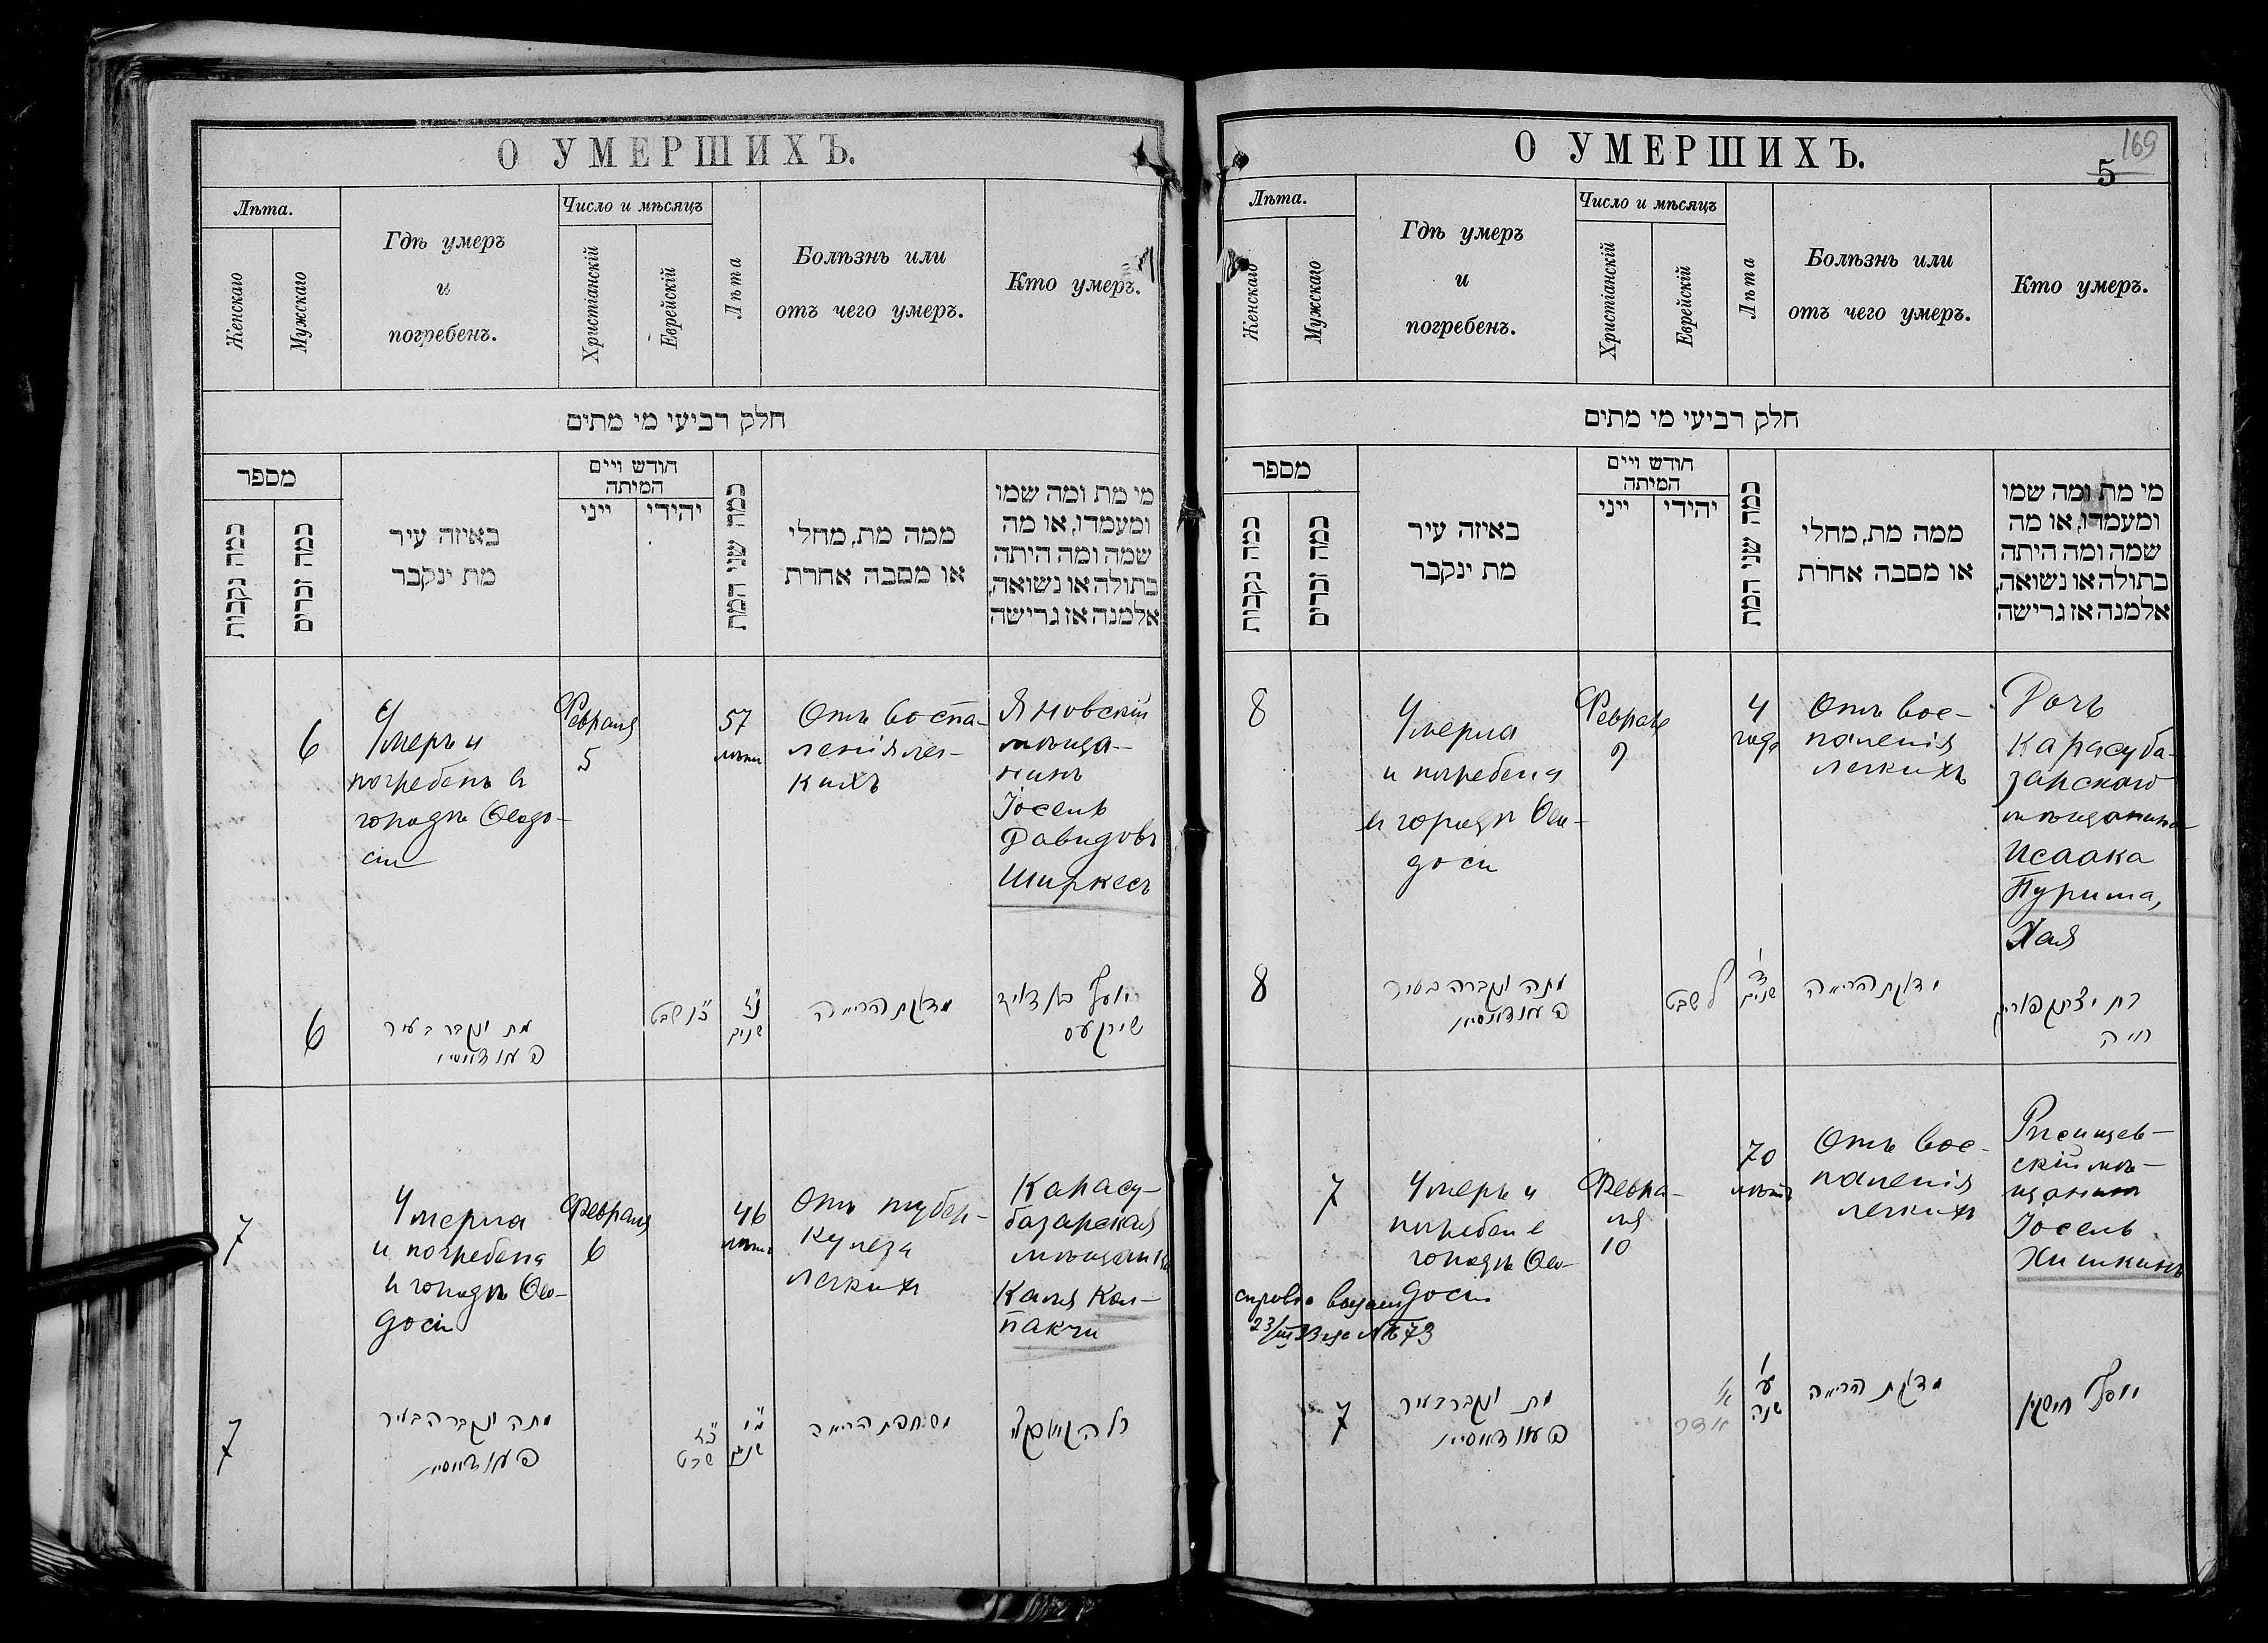 О УМЕРШИХЪ.
Лѣта.
Женскаго
Мужскаго
Гдѣ умеръ
и
погребенъ.
Число и мѣсяцъ
Христіанскій
Еврейскій
Лѣта
Болѣзнь или
отъ чего умеръ.
Кто умеръ.
חלק רביעי מי מתים
מספר
כמה נקבות
כמה זכרים
באיזה עיר
מת ינקבר
חודש ויים
המיתה
ייני
יהידי
כמה שני המת
ממה מת, מחלי
או מסבה אחרת
מי מת ומה שמו
ומעמדו, או מה
שמה ומה היתה
בתולה או נשואה,
אלמנה אז גרישה
6
Умеръ и
погребенъ в
городѣ Ѳеодо-
сіи
Февраля
5
57
лѣтъ
Отъ воспа-
ленія лег-
кихъ
Яновскій
мѣща-
нинъ
Іосель
Давидовъ
Ширкесъ
6
מת ונקבר בעיר
פעאדאסיי
כ"ו שבט
נ"ז
שנים
מדלקת הריאה
יוסף בן דוד
שירקעס
7
Умерла
и погребена
в городѣ Ѳео-
досіи
Февраля
6
46
лѣтъ
Отъ тубер-
кулеза
легкихъ
Карасу-
базарская
мѣщанка
Калія Кол-
пакчи
7
מתה ונקברה בעיר
פעאדאסיי
כ"ז
שבט
מ"ו
שנים
משחפת הריאה
О УМЕРШИХЪ.
169
5
Лѣта.
Женскаго
Мужскаго
Гдѣ умеръ
и
погребенъ.
Число и мѣсяцъ
Христіанскій
Еврейскій
Лѣта
Болѣзнь или
отъ чего умеръ.
Кто умеръ.
חלק רביעי מי מתים
מספר
כמה נקבות
כמה זכרים
באיזה עיר
מת ינקבר
חודש ויים
המיתה
ייני
יהידי
כמה שני המת
ממה מת, מחלי
או מסבה אחרת
מי מת ומה שמו
ומעמדו, או מה
שמה ומה היתה
בתולה או נשואה,
אלמנה אז גרישה
8
Умерла
и погребена
в городѣ Ѳео-
досіи
Февраля
9
4
года
Отъ вос-
паленія
легкихъ
Дочь
Карасуба-
зарскаго
мѣщанина
Исаака
Пурима,
Хая
8
מתה ונקברה בעיר
פעאדאסיי
ל שבט
ד'
שנים
מדלקת הריאה
בת יצחק פורים
חיה
7
Умеръ и
погребен в
городѣ Ѳео-
досіи
Февра-
ля
10
70
лѣтъ
Отъ вос-
паленія
легкихъ
скій мѣ-
щанинъ
Іосель
Хишкинъ
справка выдана
23/III 23 за № 73
7
מת ונקבר בעיר
פעאדאסיי
א'
אדר
ע'
שנה
מדלקת הריאה
יוסף חישקין